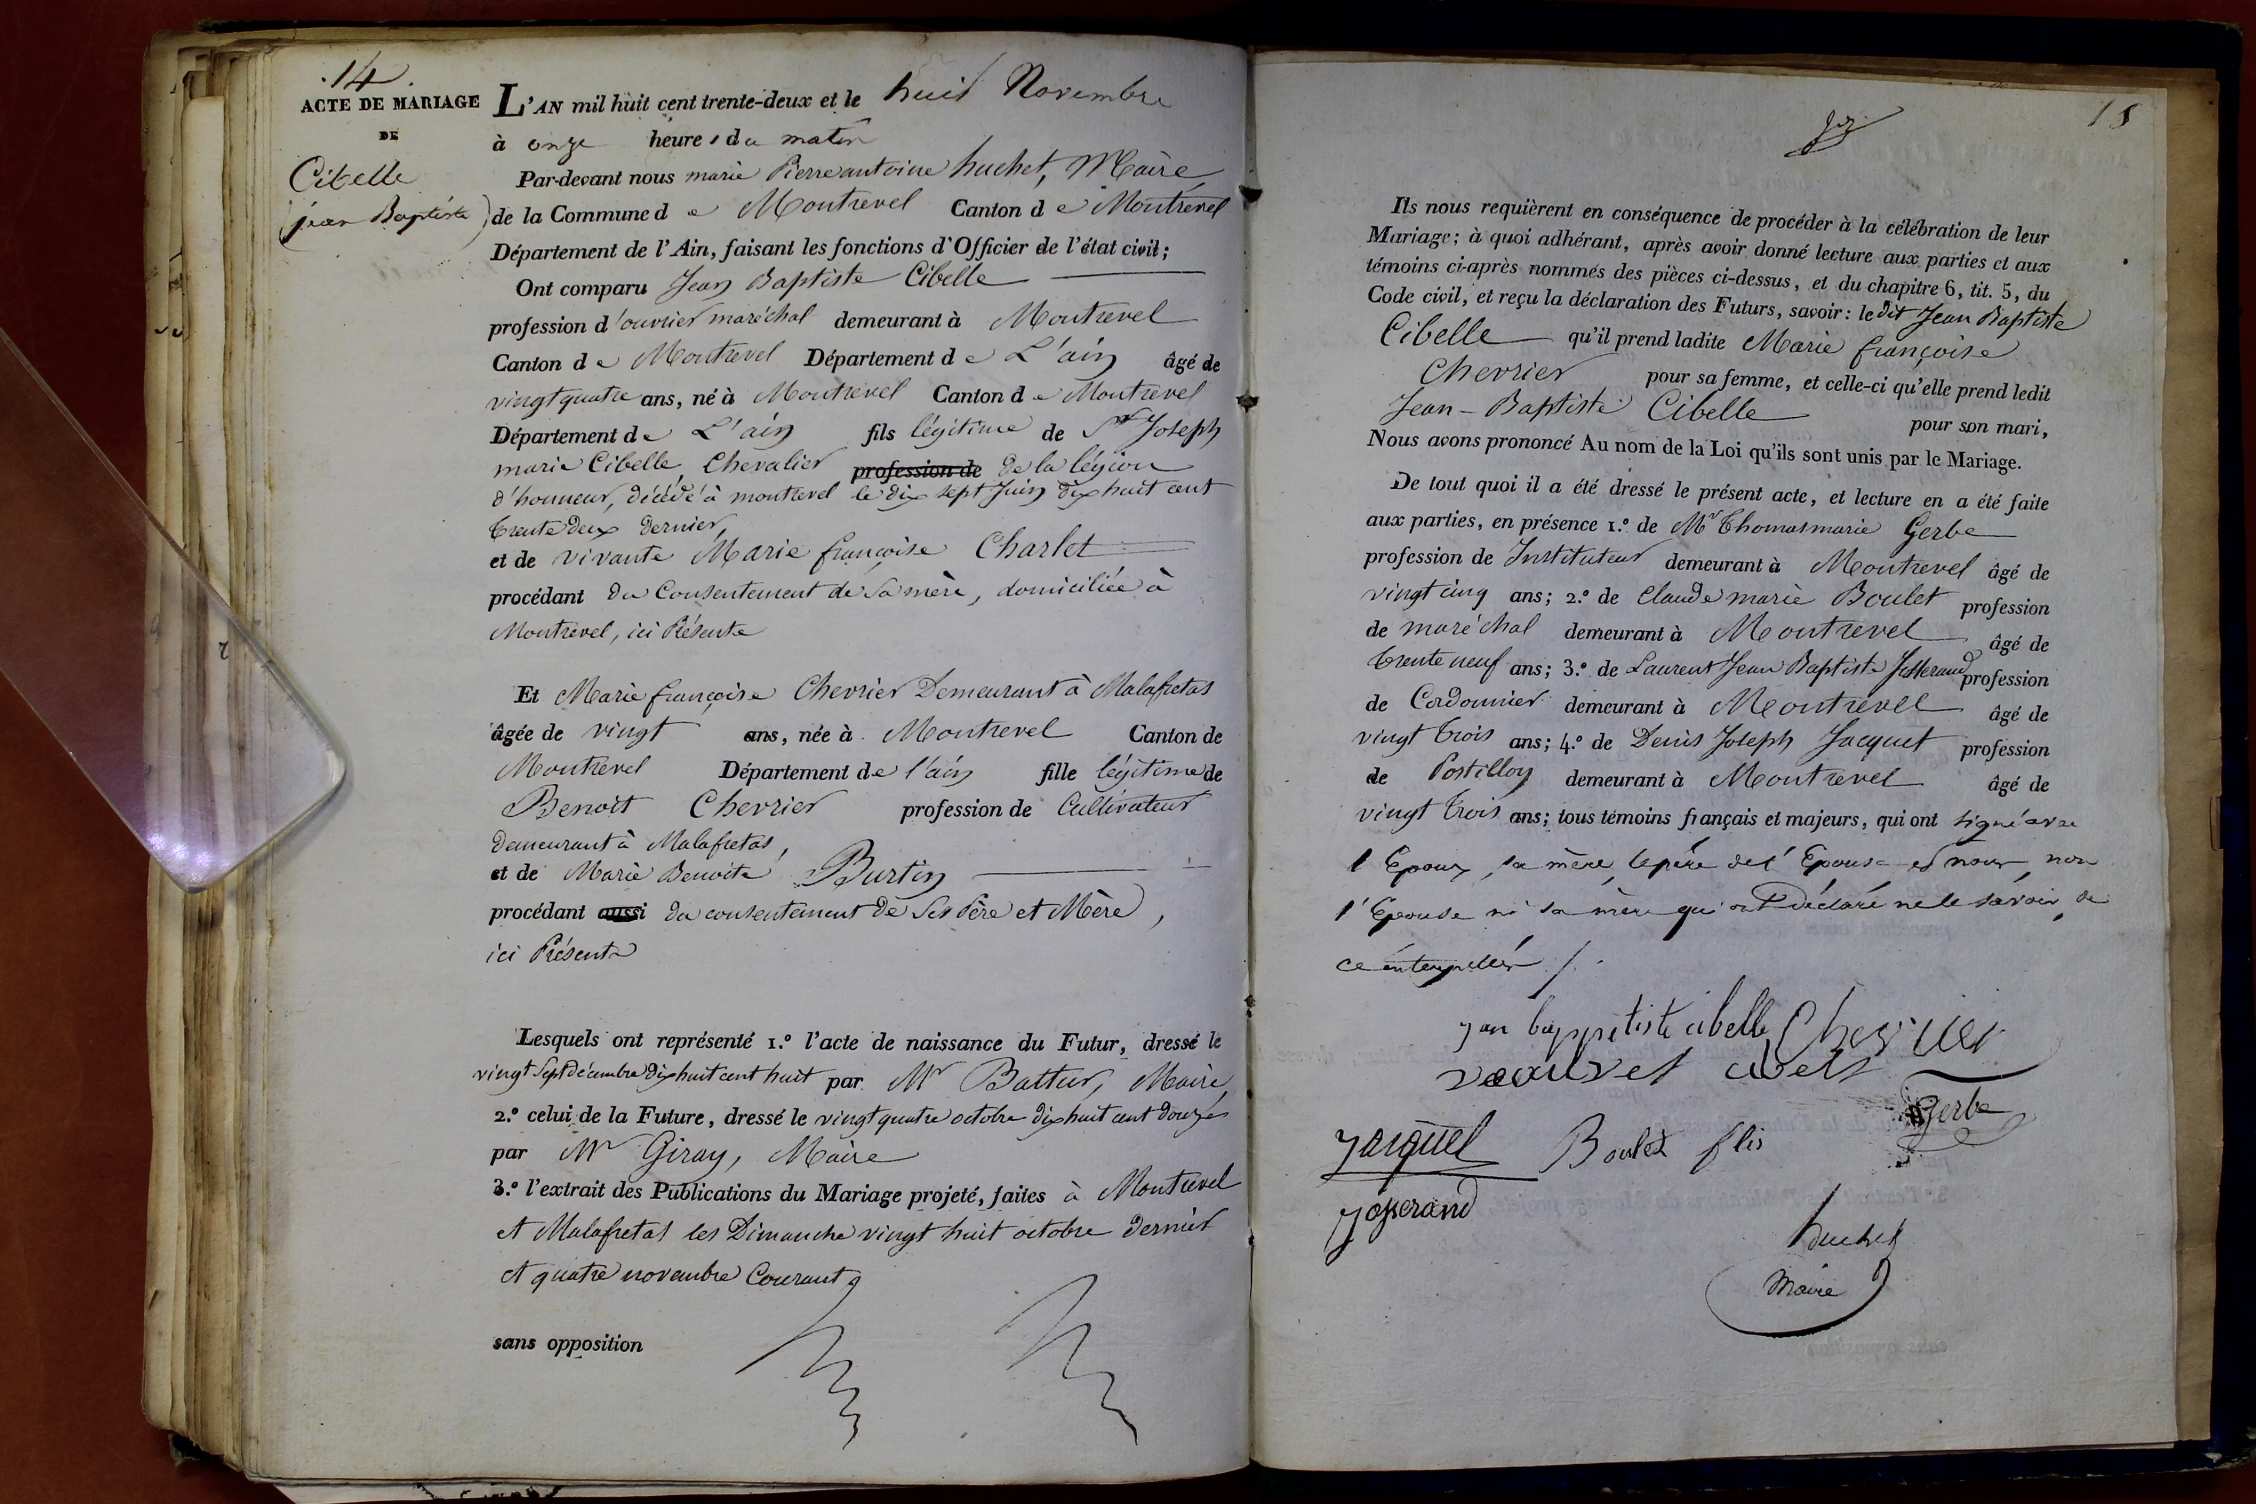 .14.
ACTE DE MARIAGE
DE
Cibelle
(jean Baptiste)
L'AN mil huit cent trente-deux et le huit Novembre
à onze heures du matin
Par-devant nous marie Pierre antoine huchet, Maire
de la Commune de Montrevel Canton de Montrevel
Département de l'Ain, faisant les fonctions d'Officier de l'état civil;
Ont comparu Jean Baptiste Cibelle
profession d'ouvrier maréchal demeurant à Montrevel
Canton de Montrevel Département de L'ain âgé de
vingt quatre ans, né à Montrevel Canton de Montrevel
Département de L'ain fils légitime de Sr Joseph
marie Cibelle Chevalier profession de de la légion
d'honneur, décédé à montrevel le dix sept Juin dix huit cent
trente deux dernier,
et de vivante Marie françoise Charlet
procédant du Consentement de Sa mère, domiciliée à
Montrevel, ici Présente
Et Marie françoise Chevrier Demeurant à Malafretas
âgée de vingt ans, née à Montrevel Canton de
Montrevel Département de l'ain fille légitime de
Benoit Chevrier profession de Cultivateur
demeurant à Malafretas,
et de Marie Benoite Burtin
procédant aussi du consentement de Ses Père et Mère,
ici Présents
Lesquels ont représenté 1.º l'acte de naissance du Futur, dressé le
vingt Sept décembre dix huit cent huit par Mr Battur, Maire
2.º celui de la Future, dressé le vingt quatre octobre dix huit cent douze
par Mr Giray, Maire
3.º l'extrait des Publications du Mariage projeté, faites à Montrevel
et Malafretas les Dimanche vingt huit octobre dernier
et quatre novembre Courant
sans opposition
15
Ils nous requièrent en conséquence de procéder à la célébration de leur
Mariage; à quoi adhérant, après avoir donné lecture aux parties et aux
témoins ci-après nommés des pièces ci-dessus, et du chapitre 6, tit. 5, du
Code civil, et reçu la déclaration des Futurs, savoir: le dit Jean Baptiste
Cibelle qu'il prend ladite Marie françoise
Chevrier pour sa femme, et celle-ci qu'elle prend ledit
Jean-Baptiste Cibelle pour son mari,
Nous avons prononcé Au nom de la Loi qu'ils sont unis par le Mariage.
De tout quoi il a été dressé le présent acte, et lecture en a été faite
aux parties, en présence 1.º de Mr Thomas marie Gerbe
profession de Instituteur demeurant à Montrevel âgé de
vingt cinq ans; 2.º de Claude marie Boulet profession
de maréchal demeurant à Montrevel âgé de
trente neuf ans; 3.º de Laurent Jean Baptiste Josserand profession
de Cordonnier demeurant à Montrevel âgé de
vingt trois ans; 4.º de Denis Joseph Jacquet profession
de Postillon demeurant à Montrevel âgé de
vingt trois ans; tous témoins français et majeurs, qui ont signé avec
l'Epoux, sa mère, le père de l'Epouse et nous, non
l'Epouse ni sa mère qui ont déclaré ne le savoir, de
ce interpellés
jan bappetiste cibelle Chevrier
Gerbe
Boulet
josserand
huchet
Maire